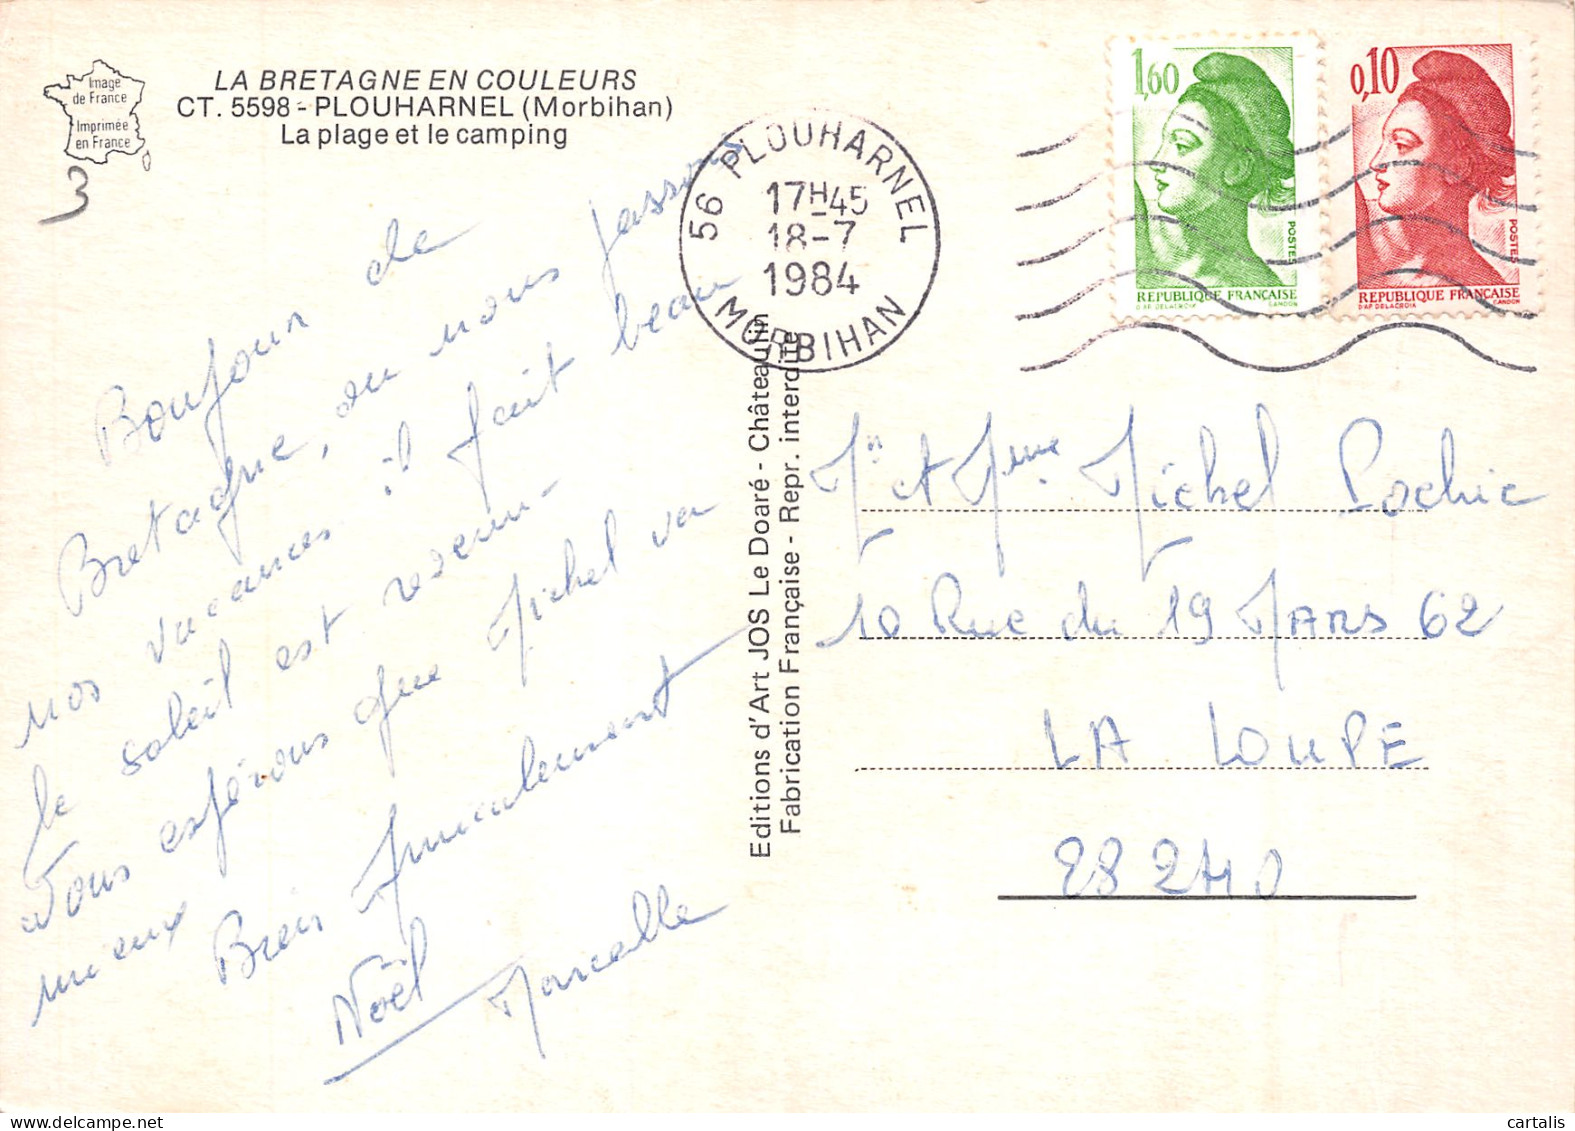 Image
de France
Imprimée
en France
3
LA BRETAGNE EN COULEURS
CT. 5598 - PLOUHARNEL (Morbihan)
La plage et le camping
Bonjour de
Bretagne, ou nous passons
nos vacances il fait beau
le soleil est revenu -
Nous espérons que Michel va
mieux
Bien Amicalement
Noël Marcelle
56 PLOUHARNEL
17H45
18-7
1984
MORBIHAN
1,60
POSTES
REPUBLIQUE FRANÇAISE
D'AP. DELACROIX GANDON
0,10
POSTES
REPUBLIQUE FRANÇAISE
D'AP. DELACROIX GANDON
Editions d'Art JOS Le Doaré - Châteaulin
Fabrication Française - Repr. interdite
Mr et Mme Michel Pochic
10 Rue du 19 MARS 62
LA LOUPE
28240
cartalis